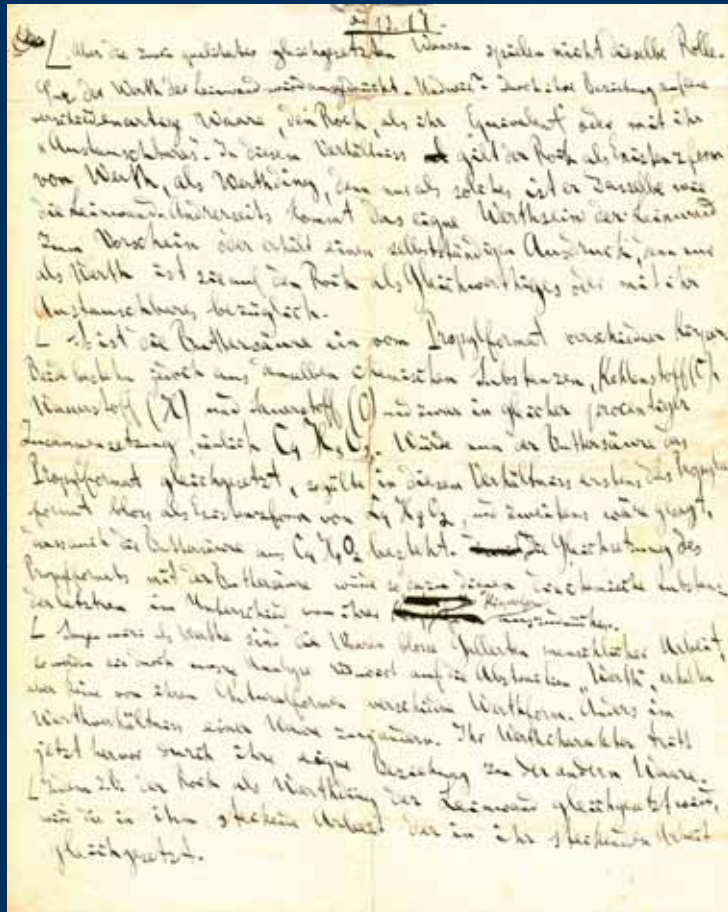 ad p. 17.
Aber die zwei qualitativ gleichgesetzten Waaren spielen nicht dieselbe Rolle.
Nur der Werth der Leinwand wird ausgedrückt. Und wie? Durch ihre Beziehung auf eine
verschiedenartige Waare, den Rock, als ihr Equivalent oder mit ihr
"Austauschbares". In diesem Verhältniss gilt der Rock als Existenzform
von Werth, als Werthding, denn nur als solches ist er dasselbe wie
die Leinwand. Andrerseits kommt das eigne Werthsein der Leinwand
zum Vorschein oder erhält einen selbstständigen Ausdruck, denn nur
als Werth ist sie auf den Rock als Gleichwerthiges oder mit ihr
Austauschbares bezüglich.
So ist die Buttersäure ein vom Propylformat verschiedner Körper.
Beide bestehn jedoch aus denselben chemischen Substanzen, Kohlenstoff (C),
Wasserstoff (H) und Sauerstoff (O) und zwar in gleicher procentiger
Zusammensetzung, nämlich C4 H8 O2. Würde nun der Buttersäure das
Propylformat gleichgesetzt, so gälte in diesem Verhältniss erstens das Propyl
format bloss als Existenzform von C4 H8 O2, und zweitens wäre gesagt,
dass auch die Buttersäure aus C4 H8 O2 besteht. die Gleichsetzung des
Propylformats mit der Buttersäure würde so dienen die chemische Substanz
der letztren im Unterschied von ihrer auszudrücken.
Sagen wir: als Werthe sind die Waaren blosse Gallerten menschlicher Arbeit,
so werden sie durch unsre Analyse reducirt auf die Abstraktion "Werth", erhalten
aber keine von ihren Naturalformen verschiedne Werthform. Anders im
Werthverhältniss einer Waare zur andern. Ihr Werthcharakter tritt
jetzt hervor durch ihre eigne Beziehung zu der andern Waare.
Indem z.B. der Rock als Werthding der Leinwand gleichgesetzt wird,
wird die in ihm steckende Arbeit der in ihr steckenden Arbeit
gleichgesetzt.